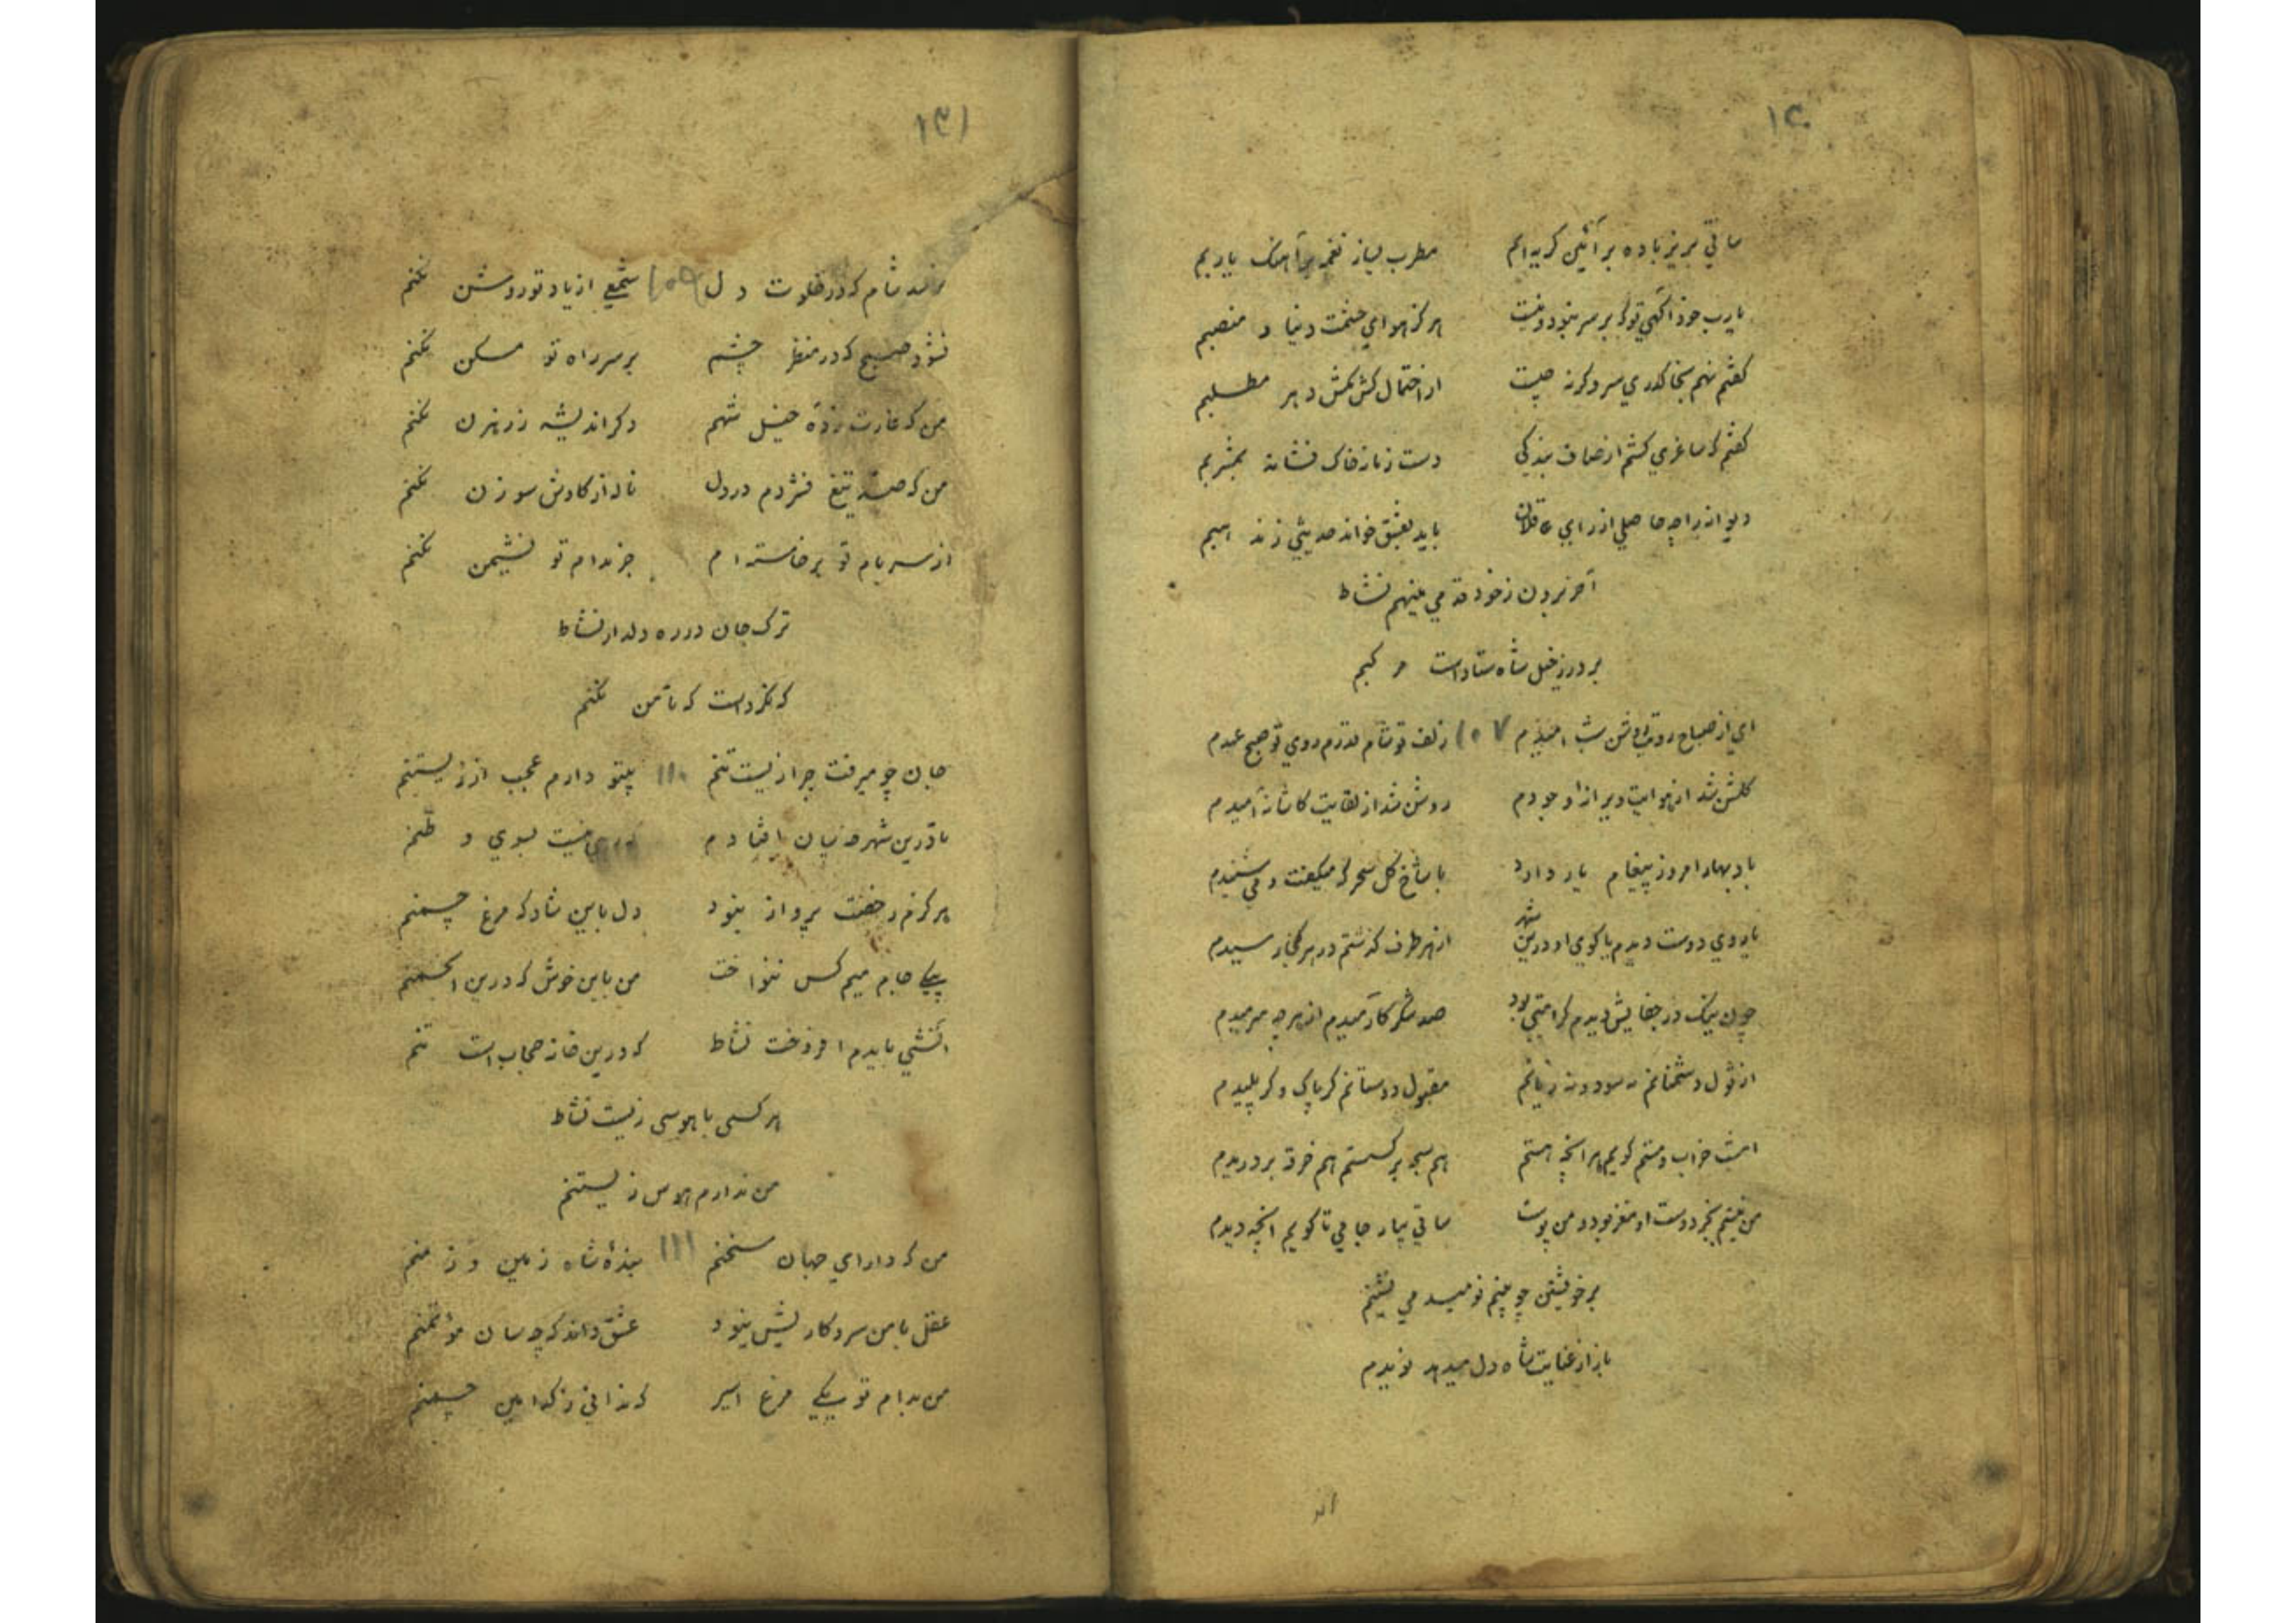 ۱۳۰
ساقی بریز باده بر آئین کریه ایم مطرب بساز نغمه بر آهنگ یاربم
یارب خود آگهی تو که بر سر نبود و نیست هرگز هوای حشمت دنیا و منصبم
گفتم نهم بجا گذری سر وگرنه چیست از احتمال کش مکش دهر مطلبم
گفتم که ساغری کشم از صاف بندگی دست زمانه خاک فشاند بمشربم
دیوانه را چه حاصلی از رای عاقلان باید بعشق خواند حدیثی ز مذهبم
آخر برون ز خود قدمی مینهم نشاط
بر در ز خیل شاه ستاداست مرکبم
ای از صباح رویت روشن شب امیدم ۱۰۷ زلف تو شام قدرم روی تو صبح عیدم
گلشن شد از هوایت ویرانه وجودم روشن شد از لقایت کاشانه امیدم
باد بهار امروز پیغام یار دارد با شاخ گل سحرگه میگفت و می شنیدم
یا روی دوست دیدم یا کوی او درین شهر از هر طرف گذشتم در هر کجا رسیدم
چون نیک در جفایش دیدم کرامتی بود صد شکر کآرمیدم از هر چه میرمیدم
از قول دشمنانم نه سود و نه زیانم مقبول دوستانم گر پاک و گر پلیدم
امشب خراب و مستم گویم هر آنچه هستم هم سبحه بر گسستم هم خرقه بر دریدم
من نیستم بجز دوست او مغز بود و من پوست ساقی بیار جامی تا گویم آنچه دیدم
بر خویشتن چو بینم نومید می نشینم
باز از عنایت شاه دل میدهد نویدم
۱۳۱
نرسد شام که در خلوت دل ۱۰۹ شمعی از یاد تو روشن نکنم
نشود صبح که در منظر چشم بر سر راه تو مسکن نکنم
من که غارت زده خیل شهم دگر اندیشه ز رهزن نکنم
من که صد تیغ فشردم در دل ناله از کاوش سوزن نکنم
از سر بام تو برخاسته ام جز بدام تو نشیمن نکنم
ترک جان در ره دلدار نشاط
که نکرداست که تا من نکنم
جان چو میرفت چرا زیست تنم ۱۱۰ بیتو دارم عجب از زیستنم
تا درین شهر میان افتادم نیست بسوی وطنم
هرگزم رخصت پرواز نبود دل باین شاد که مرغ چمنم
بیکی جام میم کس ننواخت من باین خوش که درین انجمنم
آتشی بایدم افروخت نشاط که درین خانه حجاب است تنم
هر کسی با هوسی زیست نشاط
من ندارم هوس زیستنم
من که دارای جهان سخنم ۱۱۱ بندهٔ شاه زمین و زمنم
عقل با من سر و کاریش نبود عشق داند که چه سان مؤتمنم
من بدام تو یکی مرغ اسیر که ندانی ز کدامین چمنم